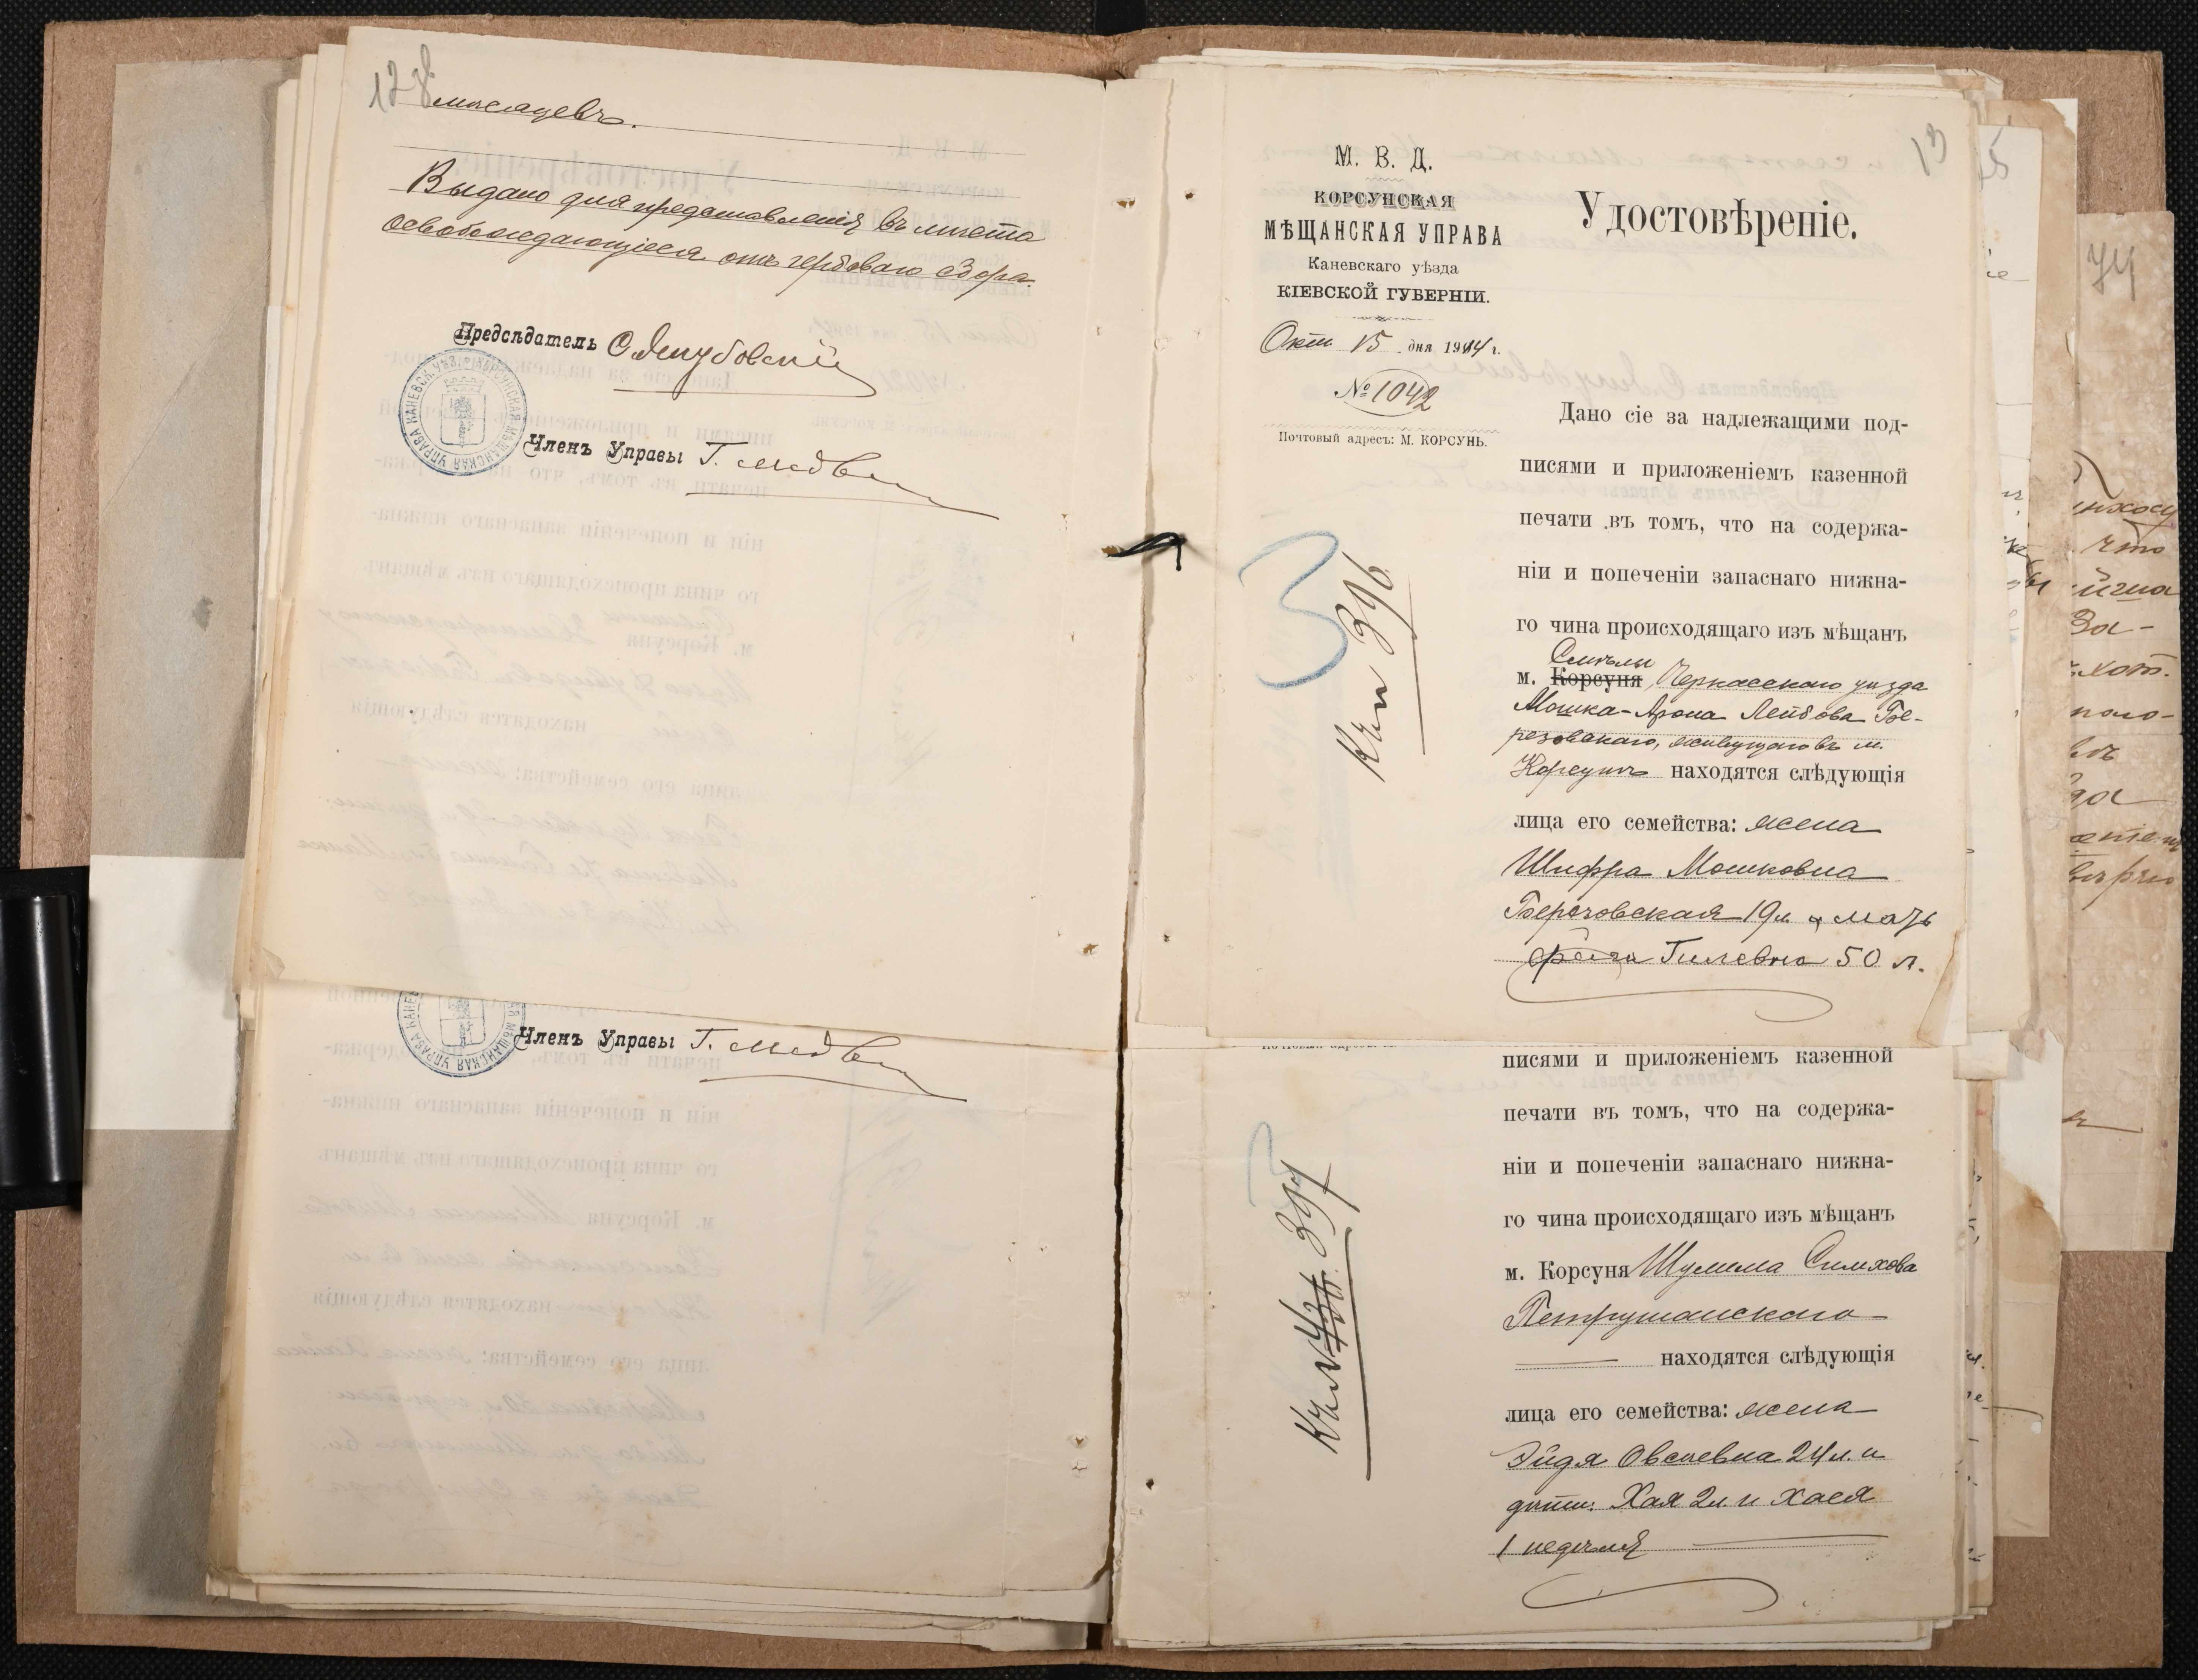 12 об
мѣсяцевъ.
Выдано для представленія въ мѣста
освобождающіеся отъ гербоваго сбора.
Предсѣдатель
Членъ Управы Г.
КОРСУНСКАЯ МѢЩАНСКАЯ УПРАВА КАНЕВСК. УѢЗ.
Членъ Управы Г.
13
М. В. Д.
КОРСУНСКАЯ
МѢЩАНСКАЯ УПРАВА
Каневскаго уѣзда
КІЕВСКОЙ ГУБЕРНІИ.
Окт 15 дня 1914 г.
№ 1042
Почтовый адресъ: М. КОРСУНЬ.
Удостовѣреніе.
Дано сіе за надлежащими под-
писями и приложеніемъ казенной
печати въ томъ, что на содержа-
ніи и попеченіи запаснаго нижня-
го чина происходящаго изъ мѣщанъ
Смѣлы
м. Корсуня, Черкасскаго уѣзда
Мошка-Арона Лейбова Бе-
резовскаго, живущаго въ м.
Корсунѣ находятся слѣдующія
лица его семейства: жена
Шифра Мошковна
Березовская 19 л. и мать
Гилевна 50 л.
3
К № 396
писями и приложеніемъ казенной
печати въ томъ, что на содержа-
ніи и попеченіи запаснаго нижня-
го чина происходящаго изъ мѣщанъ
м. Корсуня Шулима Симхова
Петрушанскаго
находятся слѣдующія
лица его семейства: жена
Эйдя Овсѣевна 24 л. и
дѣти: Хая 2 л. и Хася
1 недѣля
К № 436. 397
74
что
За-